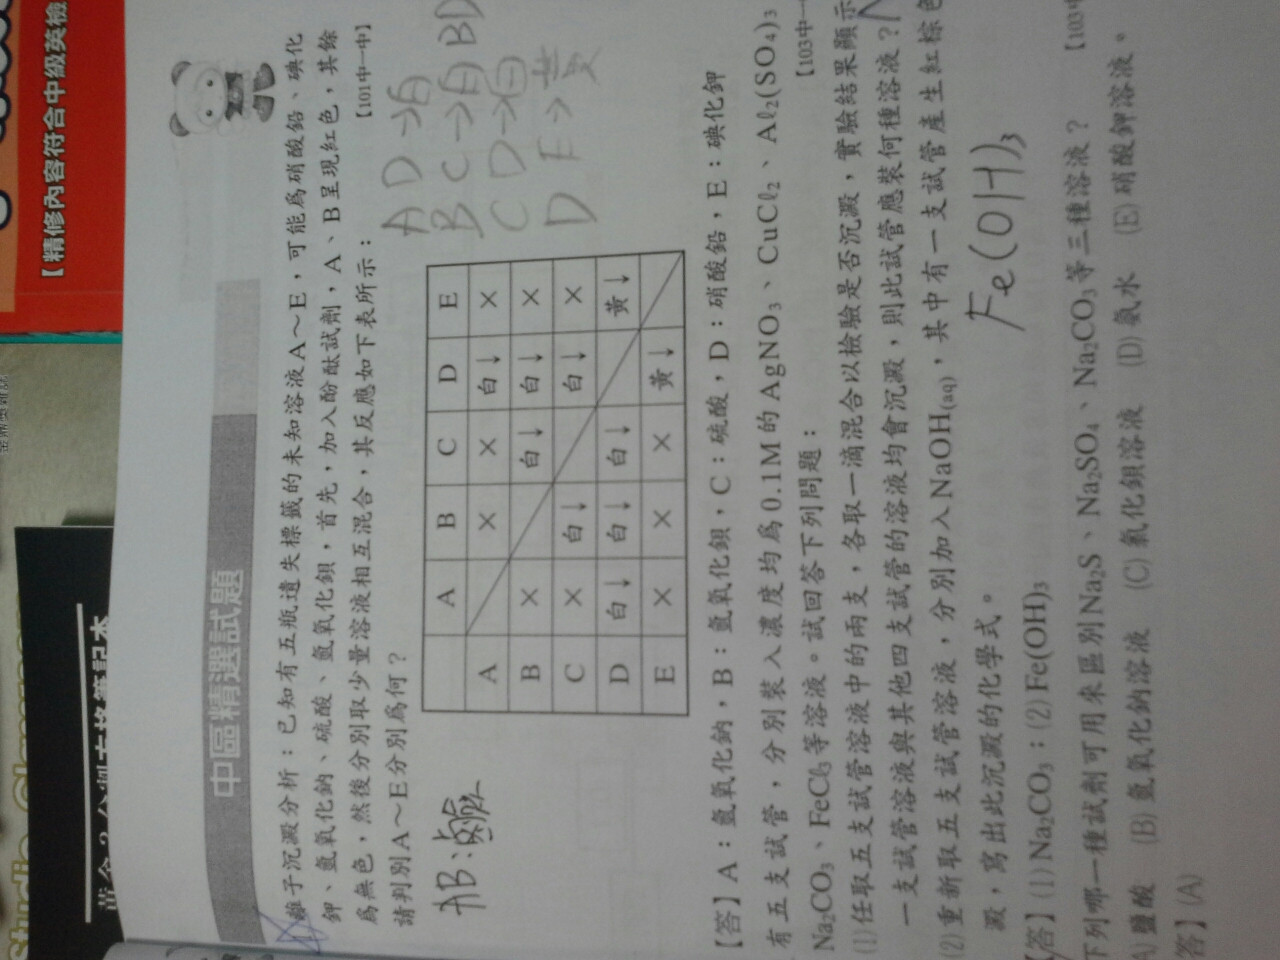 【精修內容符合中級英檢
中區精選試題
離子沉澱分析：已知有五瓶遺失標籤的未知溶液A～E，可能為硝酸鉛、碘化
鉀、氫氧化鈉、硫酸、氫氧化鋇，首先，加入酚酞試劑，A、B呈現紅色，其餘
為無色，然後分別取少量溶液相互混合，其反應如下表所示：
【101中一中】
請判別A～E分別為何？
AB:鹼
A D→白
B C→白 BD
C D→白
D E→黃
A B C D E
A × × 白↓ ×
B × 白↓ 白↓ ×
C × 白↓ 白↓ ×
D 白↓ 白↓ 白↓ 黃↓
E × × × 黃↓
【答】A：氫氧化鈉，B：氫氧化鋇，C：硫酸，D：硝酸鉛，E：碘化鉀
有五支試管，分別裝入濃度均為0.1M的AgNO₃、CuCl₂、Al₂(SO₄)₃
Na₂CO₃、FeCl₃等溶液。試回答下列問題：
【103中一
(1)任取五支試管溶液中的兩支，各取一滴混合以檢驗是否沉澱，實驗結果顯示
一支試管溶液與其他四支試管的溶液均會沉澱，則此試管應裝何種溶液？
(2)重新取五支試管溶液，分別加入NaOH(aq)，其中有一支試管產生紅棕色
澱，寫出此沉澱的化學式。
Fe(OH)₃
【答】(1)Na₂CO₃；(2)Fe(OH)₃
下列哪一種試劑可用來區別Na₂S、Na₂SO₄、Na₂CO₃等三種溶液？
【103中
A)鹽酸 (B)氫氧化鈉溶液 (C)氯化鋇溶液 (D)氨水 (E)硝酸鉀溶液。
答】(A)